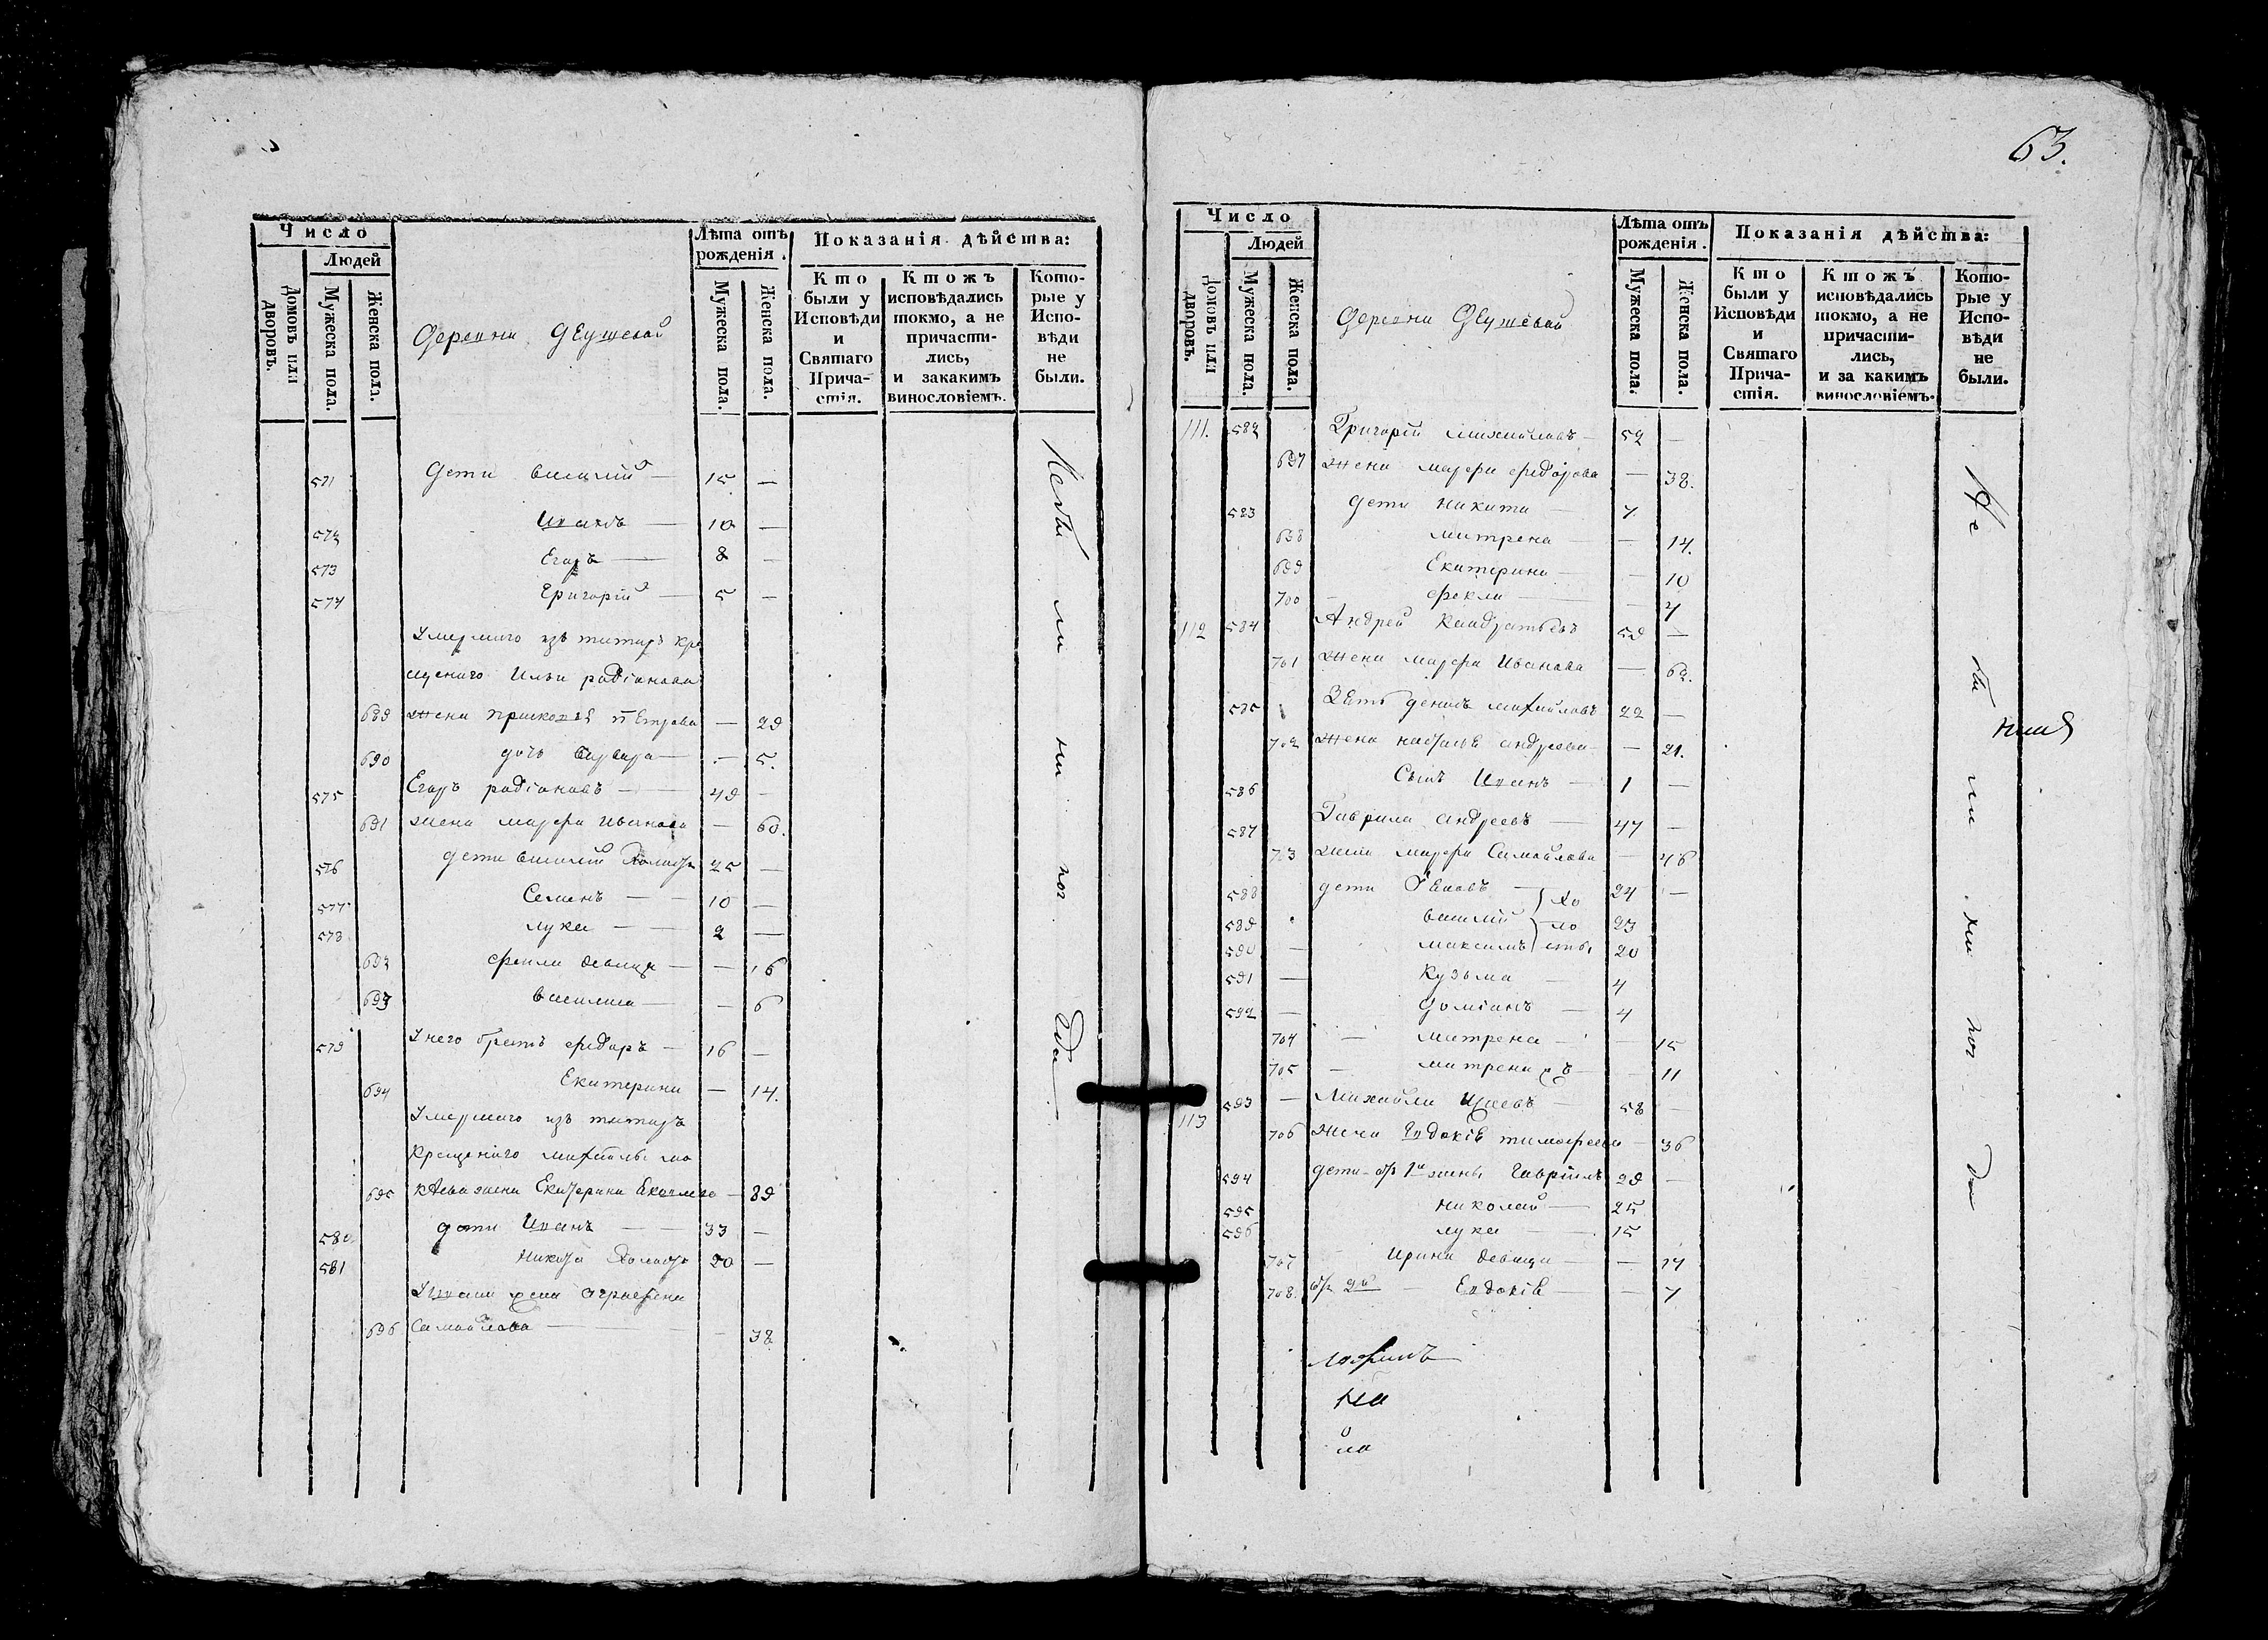 63.
Число
Людей
Домовъ или дворовъ.
Мужеска пола.
Женска пола.
Деревни Деушевой
Лѣта отъ рожденія.
Мужеска пола.
Женска пола.
Показанія дѣйства:
Кто были у Исповѣди и Святаго Прича-стія.
Ктожъ исповѣдались токмо, а не причасти-лись, и закакимъ винословіемъ.
Кото-рые у Испо-вѣди не были.
571 Дети василий — 15 —
572 Иванъ — 10 —
573 Егоръ — 8 —
574 Григорій — 5 —
Умершаго изъ татаръ кре
щенаго Ильи радіонова
689 жена Прасковья петрова — 29
690 дочь варвара — — 5.
575 Егоръ радіоновъ — 49 —
691 жена марфа иванова — 60.
576 дети василий холостъ 25 —
577 Семенъ — 10 —
578 лука — 2 —
692 фекла девица — — 16
693 василиса — — 6
579 У него братъ федоръ — 16 —
694 Екатерина — 14.
Умершаго изъ татаръ
крещенаго михайлы
695 жена Екатерина — 89
580 дети Иванъ — 33 —
581 никита холостъ 20 —
У Ивана жена
696 Самойлова — — 38
Небы ли ни ког да
Число
Людей
Домовъ или дворовъ.
Мужеска пола.
Женска пола.
Деревни Деушевой
Лѣта отъ рожденія.
Мужеска пола.
Женска пола.
Показанія дѣйства:
Кто были у Исповѣди и Святаго Прича-стія.
Ктожъ исповѣдались токмо, а не причасти-лись, и за какимъ винословіемъ.
Кото-рые у Испо-вѣди не были.
111. 582 Григорій михайловъ — 52 —
697 жена марфа федорова — 38.
583 дети никита — 7
698 матрена — — 14.
699 Екатерина — — 10
700 фекла — — 7
112 584 Андрей Кондратьевъ 59 —
701 жена марфа Иванова — 62.
585 Зять денисъ михайловъ 22 —
702 жена наталья андреева — 21.
586 Сынъ Иванъ — 1 —
587 Гаврила андреевъ — 47 —
703 жена марфа Самойлова — 46
588 дети Яковъ — 24 —
589 василий 23
590 — максимъ 20
хо ло сты
591 — Кузьма — 4
592 — Доміанъ — 4
704 — матрена — — 15
705 — матрена — — 11
113 593 — Михайла — 58 —
706 жена Евдокія тимофеева — 36
594 дети отъ 1й жены Гаврiилъ 29 —
595 николай — 25
596 лука — 15
707 Ирина девица — — 14
708. отъ 2й — Евдокія — — 7
Не бы ли ни ког да
на
ло